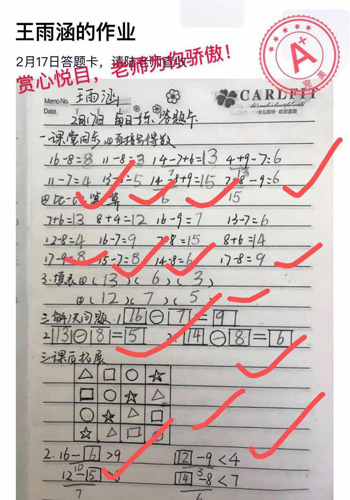 王雨涵的作业
2月17日答题卡，请陆老师查收
赏心悦目，老师为你骄傲！
A+
完美
Memo No.
王雨涵
CARLFIT
2月17日 每日十乐 答题卡
一.课堂同步 ⑴直接写得数
16-8=8 11-8=3 14-7+6=13 4+9-7=6
11-7=4 13-8=5 15 7+8-9=6
7+6=13 8+4=12 16-9=7 13-7=6
12-8=4 16-7=9 7+8=15 8+6=14
17-9=8 15-7=8 14-8=6 17-8=9
3.填表⑴(13)(6)(3)
⑵(12)(7)(5)
二.解决问题.1 16-7=9
2 13-8=5 3. 14-8=6
三.课后拓展
2.16-6>9 12-9<4
14-8<7